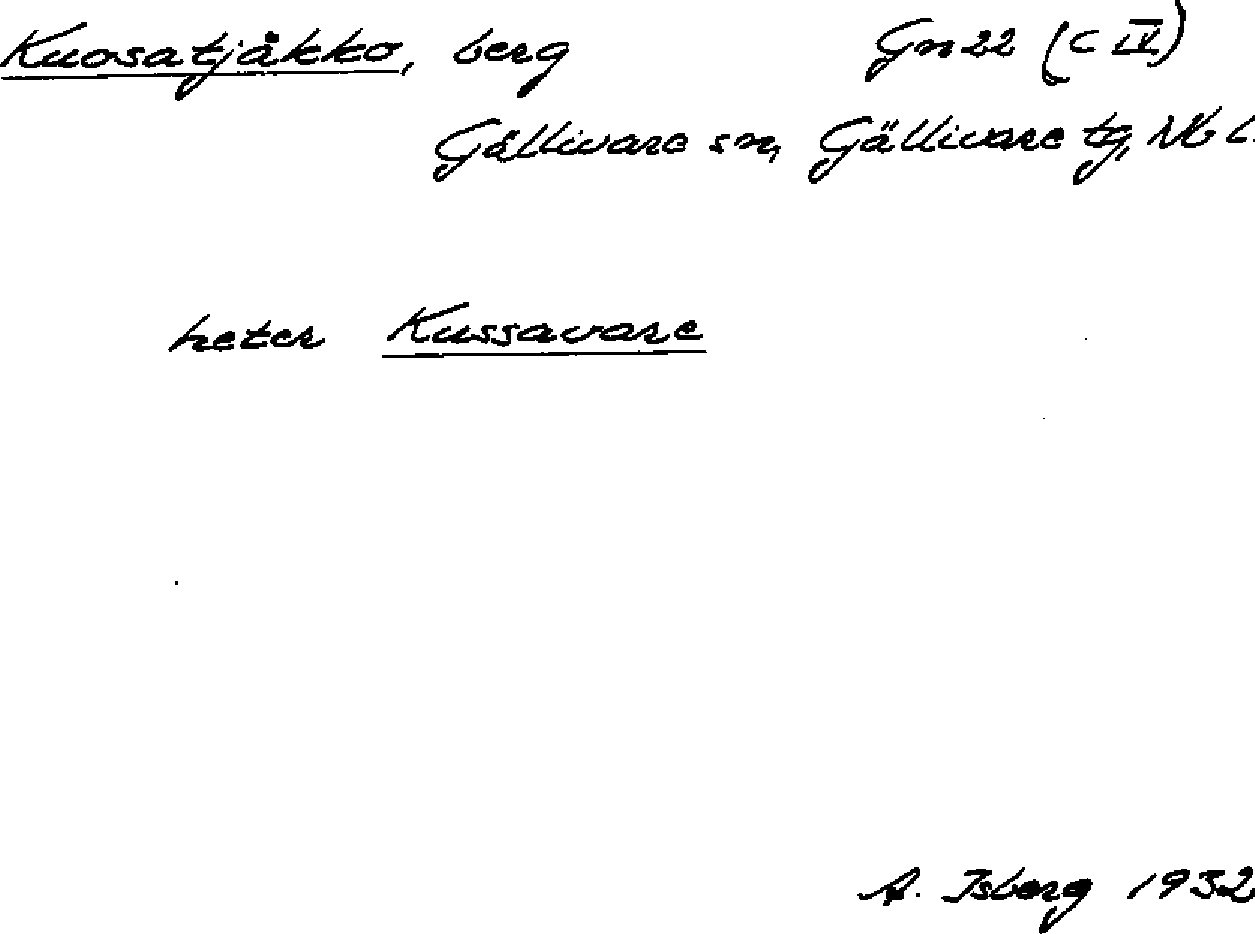 Kuosatjåkko, berg Gn 22 (C IV)
Gällivare sn, Gällivare tg, Nb L.
heter Kussavare
A. Isberg 1932